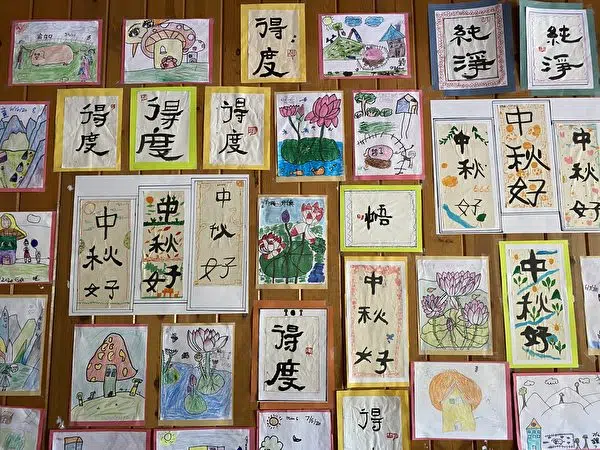 得度
純淨
純淨
得度
得度
得度
中秋好
中秋好
中秋好
中秋好
中秋好
中秋好
悟
中秋好
中秋好
得度
得